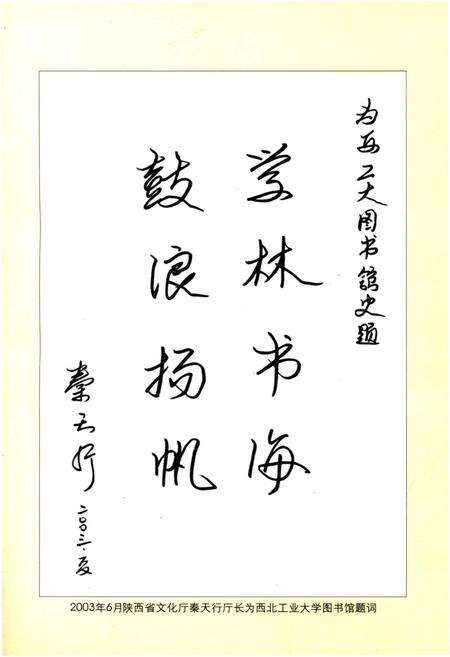 为西工大图书馆史题
学林书海
鼓浪扬帆
秦天行
二〇〇三.夏
2003年6月陕西省文化厅秦天行厅长为西北工业大学图书馆题词